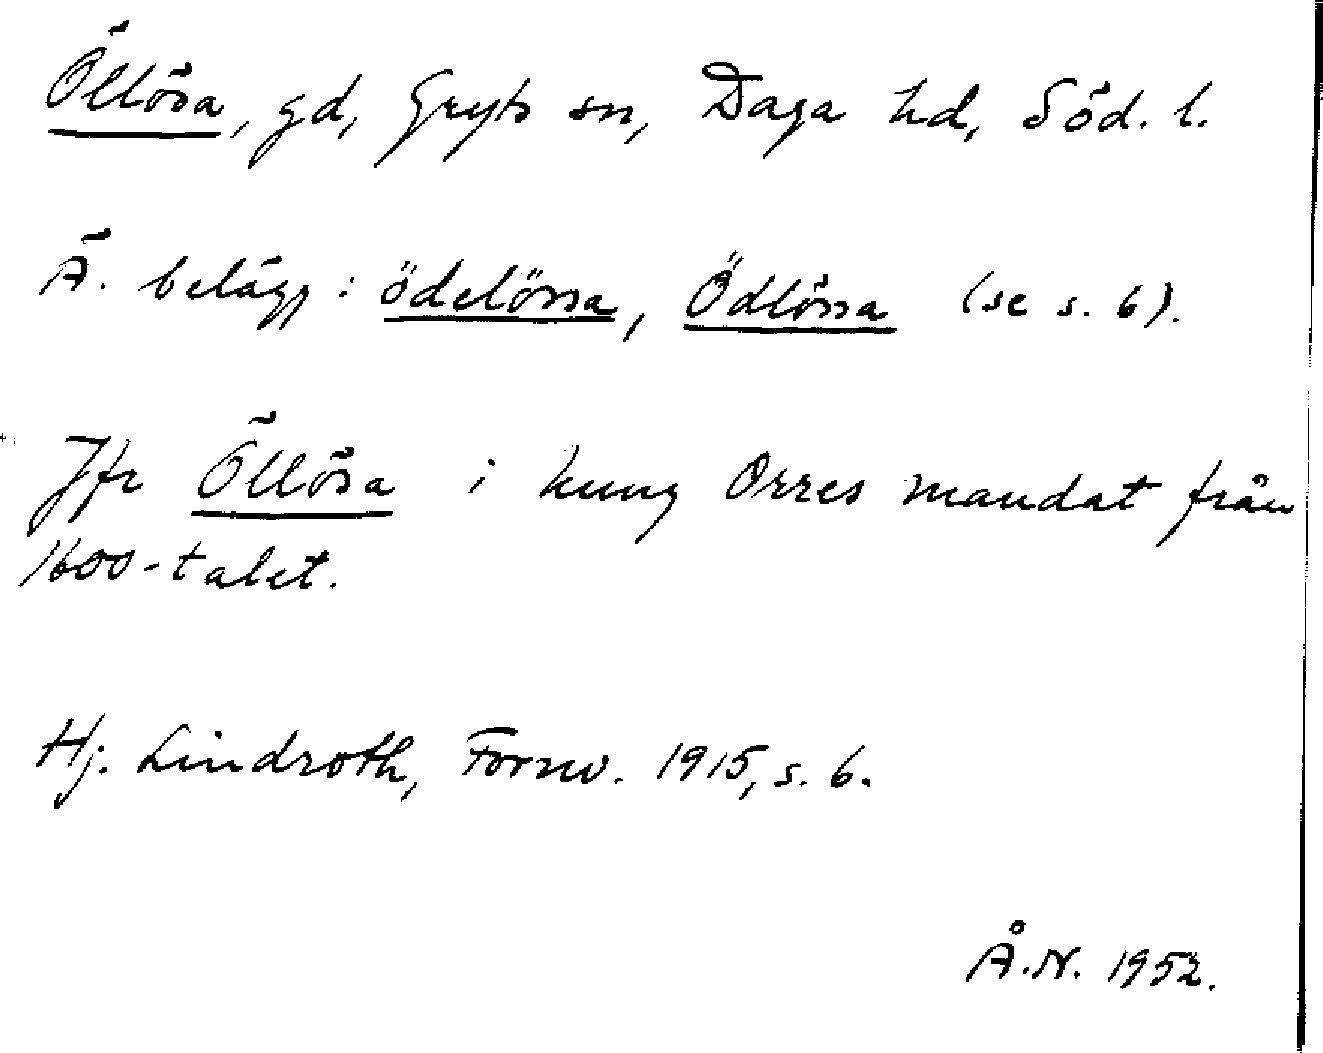 Öllösa, gd, Gryts sn, Daga hd, Söd. l.
Ä. belägg: ödelössa, Ödlössa (se s. 6).
Jfr Öllösa i kung Orres mandat från
1600-talet.
Hj. Lindroth, Fornv. 1915, s. 6.
Å.N. 1952.